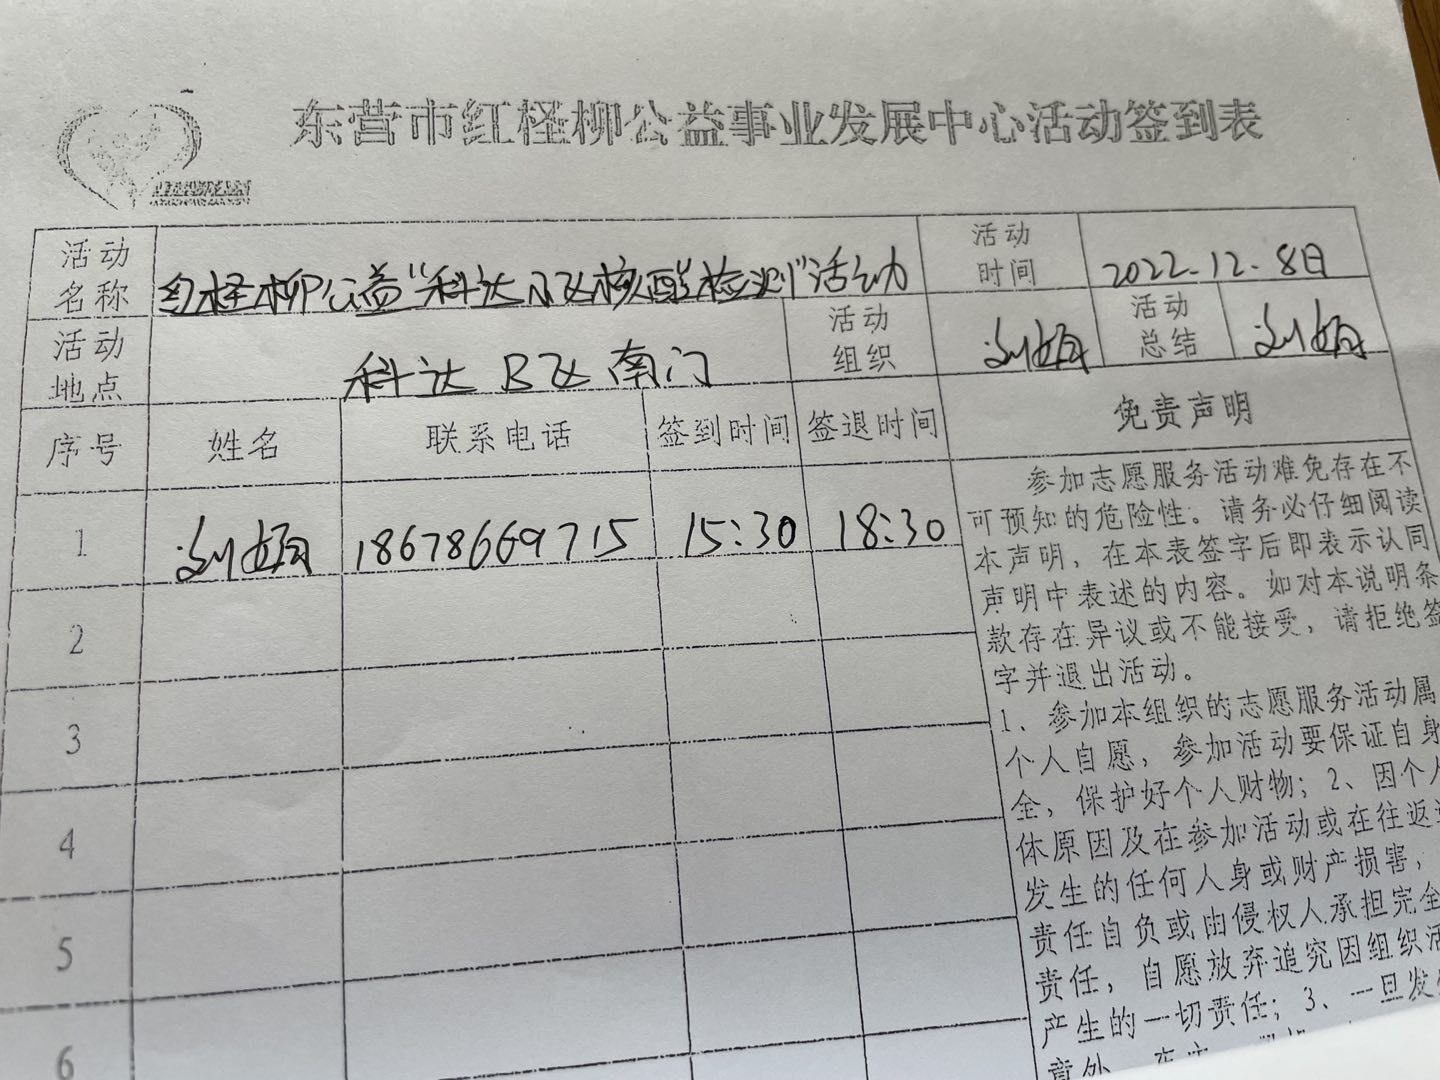 东营市红柽柳公益事业发展中心活动签到表
活动名称 红柽柳公益“科达B区核酸检测”活动 活动时间 2022.12.8日
活动地点 科达B区南门 活动组织 刘娟 活动总结 刘娟
序号 姓名 联系电话 签到时间 签退时间 免责声明
1 刘娟 18678669715 15:30 18:30
2
3
4
5
6
参加志愿服务活动难免存在不
可预知的危险性。请务必仔细阅读
本声明,在本表签字后即表示认同
声明中表述的内容。如对本说明条
款存在异议或不能接受,请拒绝签
字并退出活动。
1、参加本组织的志愿服务活动属
个人自愿,参加活动要保证自身
全,保护好个人财物;2、因个人
体原因及在参加活动或在往返
发生的任何人身或财产损害,
责任自负或由侵权人承担完全
责任,自愿放弃追究因组织活
产生的一切责任;3、一旦发生
意外